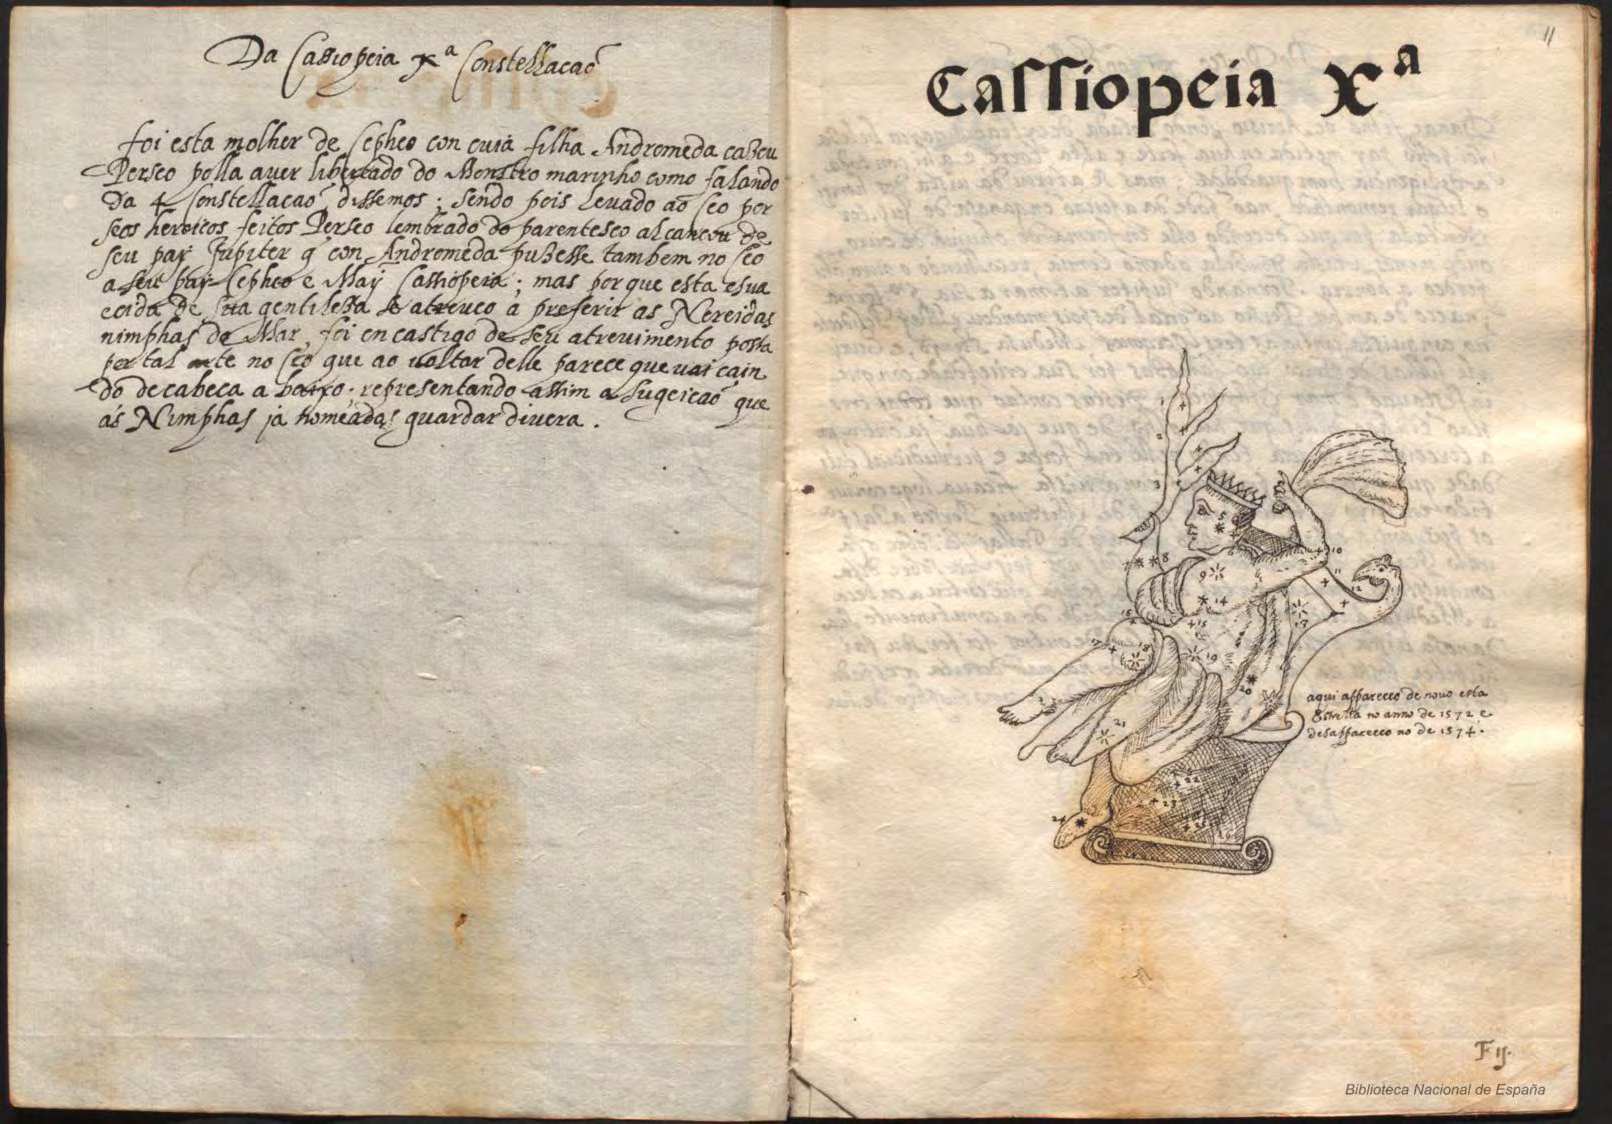 Da Cassiopeia Xª Constellacaõ
foi esta molher de Cepheo con cuia filha Andromeda cazou
Perseo polla auer libertado do Monstro marinho como falando
da 4 Constellacaõ dissemos; sendo pois leuado ao Ceo por
seos heroicos feitos Perseo lembrado do parentesco alcancou de
seu pay Jupiter q con Andromeda puzesse tambem no Ceo
a seu pay Cepheo e May Cassiopeia; mas por que esta esua
ecida de sua gentileza se atreueo a preferir as Nereidas
nimphas do Mar, foi en castigo de seu atreuimento posta
por tal arte no Ceo que ao uoltar delle parece que uai cain
do de cabeca a baixo; representando assim a Sugeicaõ que
ás Nimphas já nomeadas guardar diuera.
11
Cassiopeia Xª
1
2
5
6
7
8
9
10
11
12
14
15
17
19
20
21
22
23
24
aqui appareceo de nouo esta
Estrella no anno de 1572 e
desappareceo no de 1574.
F ij.
Biblioteca Nacional de España